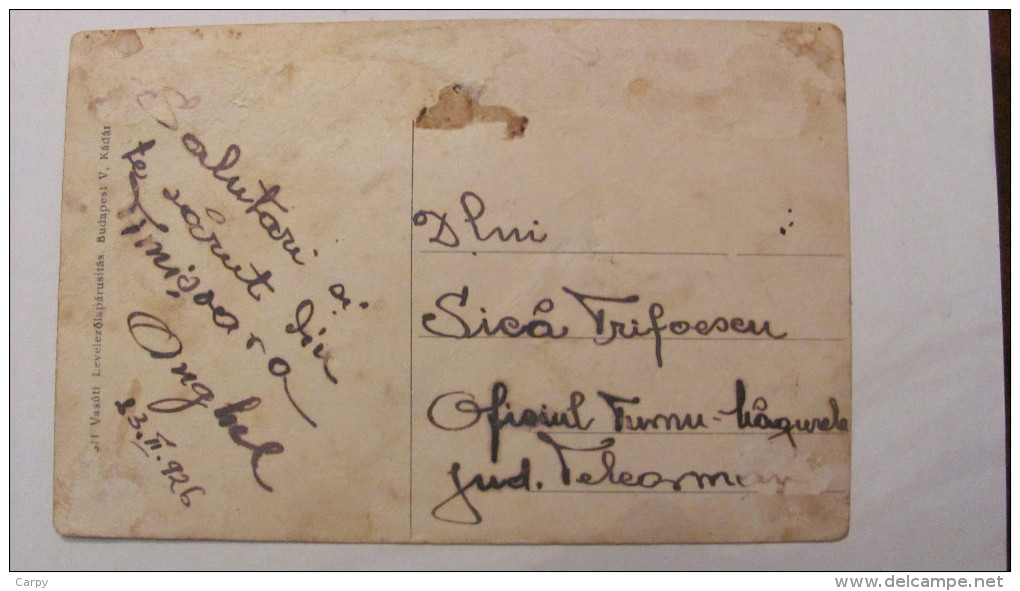 Salutari și
te sărut din
Timișoara
Anghel
23.II.926
Vasúti Levelezőlapárusitás, Budapest V, Kádár
Dlui :
Sică Trifoescu
Oficiul Turnu-Măgurele
jud. Teleorman
Carpy
http://www.delcampe.net